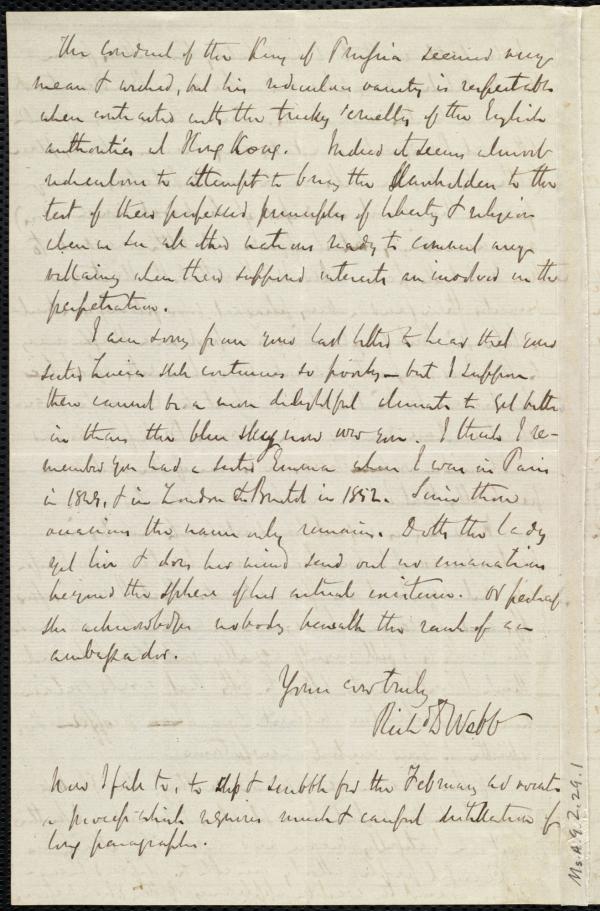 The conduct of the King of Prussia seemed very
mean & wicked, but his ridiculous vanity is respectable
when contrasted with the tricky cruelty of the English
authorities at Hong Kong. Indeed it seems almost
ridiculous to attempt to bring the Slaveholders to the
test of their professed principles of liberty & religion
when we see all other nations ready to commit any
villainy when their supposed interests are involved in the
perpetration.
I am sorry from your last letter to hear that your
sister Louisa still continues so poorly - but I suppose
there cannot be a more delightful climate to get better
in than the blue sky now over you. I think I re-
member you had a sister Emma when I was in Paris
in 1849, & in London & Bristol in 1852. Since those
occasions the name only remains. Doth the lady
yet live & does her mind send out no emanations
beyond the sphere of her actual existence. Or perhaps
she acknowledges nobody beneath the rank of an
ambassador.
Yours ever truly
Richd D Webb
Now I fall to, to & scribble for the February advocate
a process which requires much & careful distillation of
long paragraphs.
Ms.A.9.2.29.1